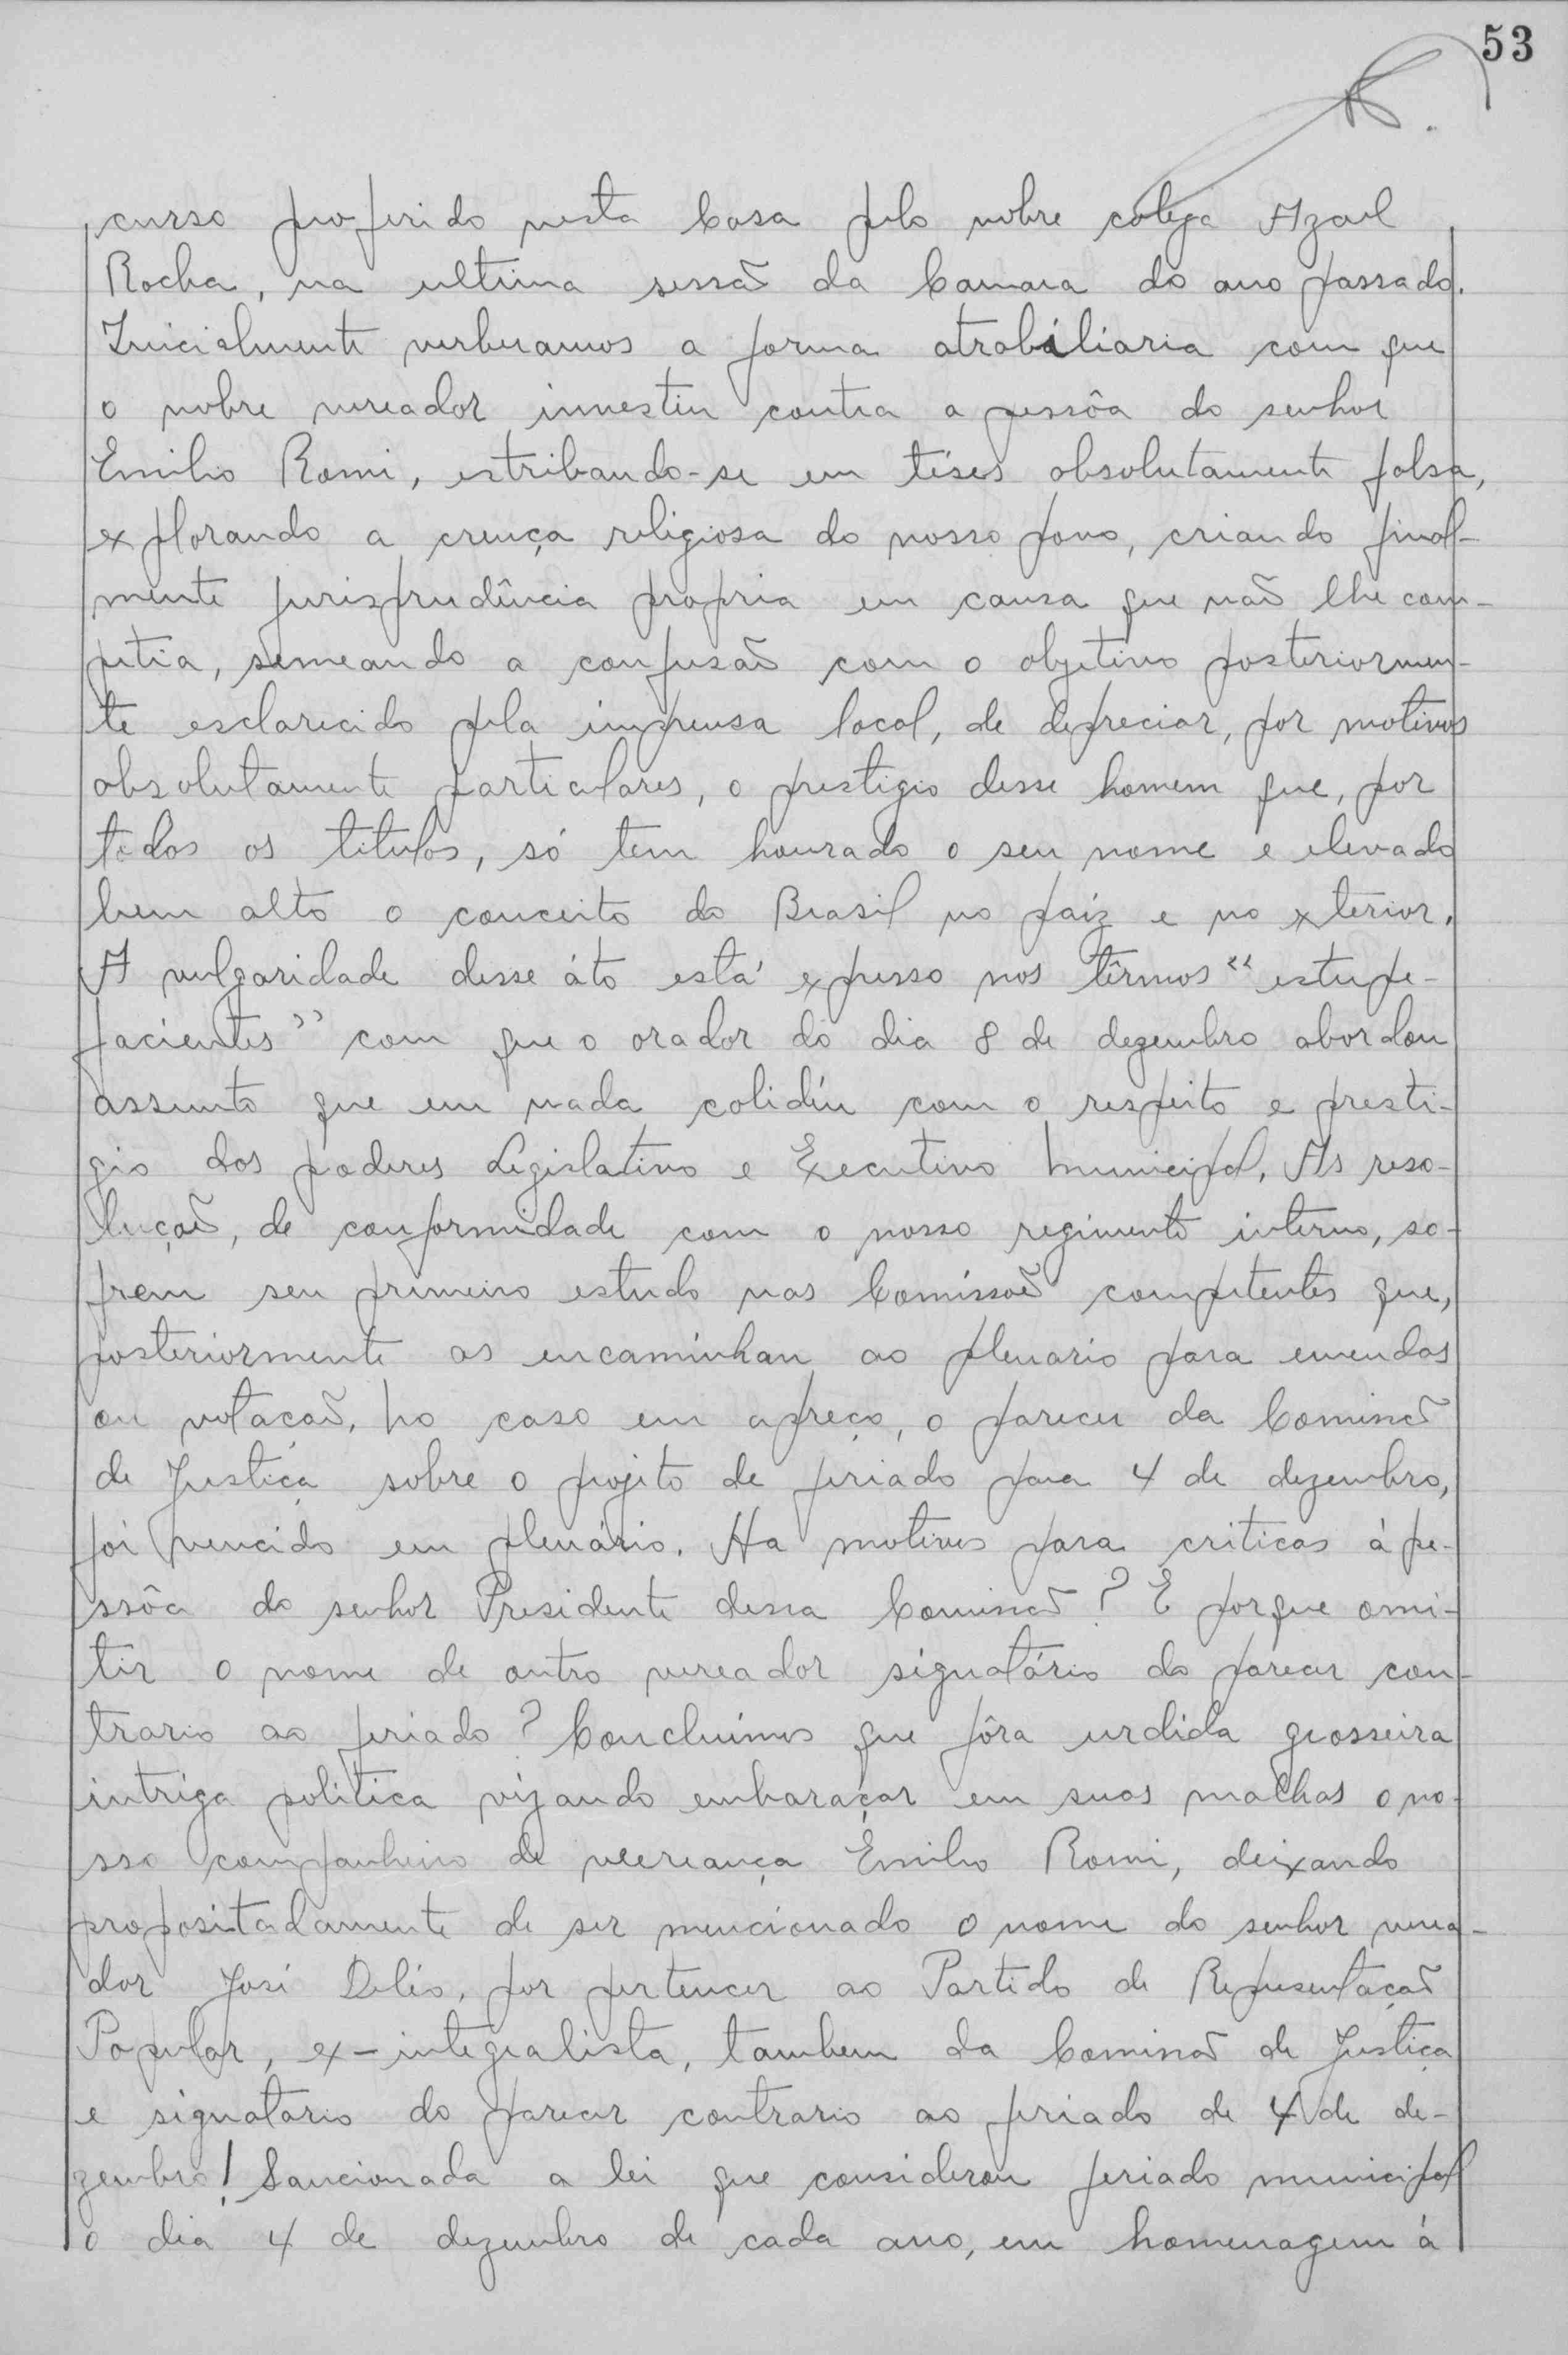 53
curso proferido nesta Casa pelo nobre colega Azael
Rocha, na ultima sessão da Camara do ano passado.
Inicialmente verberamos a forma atrabiliaria com que
o nobre vereador investiu contra a pessôa do senhor
Emilio Romi, estribando-se em téses absolutamente falsa,
explorando a crença religiosa do nosso povo, criando final-
mente jurisprudência propria em causa que não lhe com-
petia, semeando a confusão com o objetivo posteriormen-
te esclarecido pela imprensa local, de depreciar, por motivos
absolutamente particulares, o prestigio desse homem que, por
todos os titulos, só tem honrado o seu nome e elevado
bem alto o conceito do Brasil no paiz e no exterior.
A vulgaridade desse áto está expresso nos têrmos "estupe-
facientes" com que o orador do dia 8 de dezembro abordou
assunto que em nada colidíu com o respeito e presti-
gio dos poderes Legislativo e Executivo Municipal. As reso-
luções, de conformidade com o nosso regimento interno, so-
frem seu primeiro estudo nas Comissões competentes que,
posteriormente as encaminham ao plenario para emendas
ou votacão. No caso em apreço, o parecer da Comissão
de Justiça sobre o projéto de feriado para 4 de dezembro,
foi vencido em plenário. Ha motivos para criticas á pe-
ssôa do senhor Presidente dessa Comissão? E porque omi-
tir o nome de outro vereador signatário do parecer con-
trario ao feriado? Concluimos que fôra urdida grosseira
intriga politica vizando embaraçar em suas malhas o no-
sso companheiro de vereança Emilio Romi, deixando
propositadamente de ser mencionado o nome do senhor verea-
dor José Delío, por pertencer ao Partido de Representação
Popular, ex-integralista, tambem da Comissão de Justiça
e signatario do parecer contrario ao feriado de 4 de de-
zembro! Sancionada a lei que considerou feriado municipal
o dia 4 de dezembro de cada ano, em homenagem á